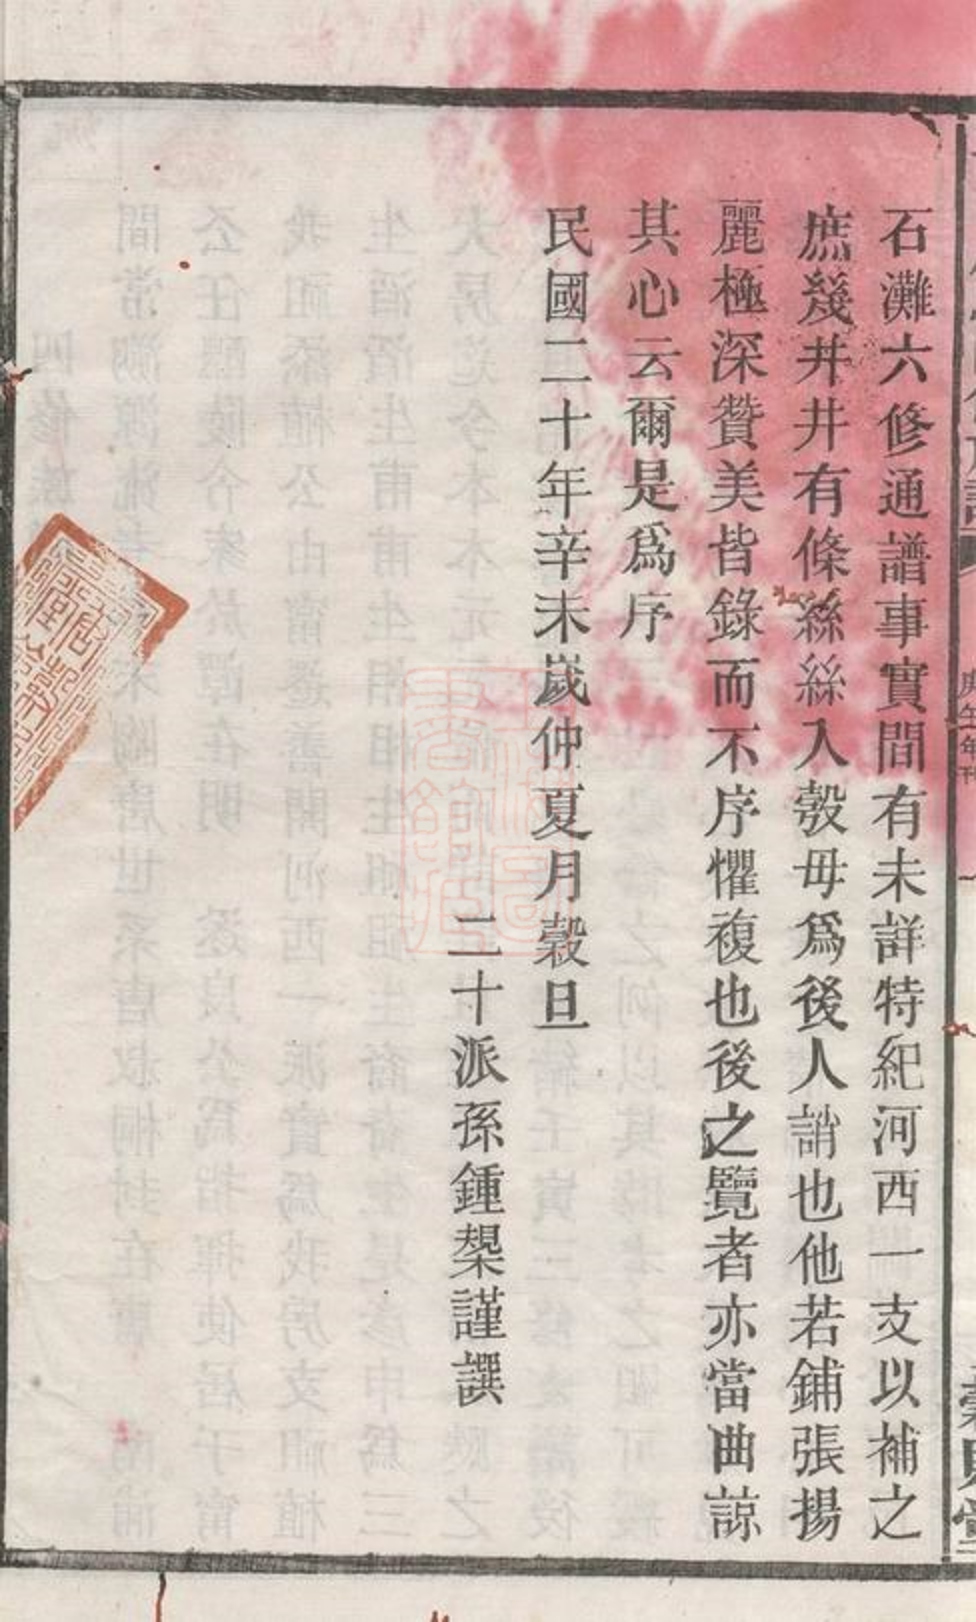 石灘六修通譜事實間有未詳特紀河西一支以補之
庶幾井井有條絲絲入彀毋爲後人誚也他若鋪張揚
麗極深贊美皆錄而不序懼複也後之覽者亦當曲諒
其心云爾是爲序
民國二十年辛未嵗仲夏月穀旦
二十派孫鍾槼謹譔
庚午年刊